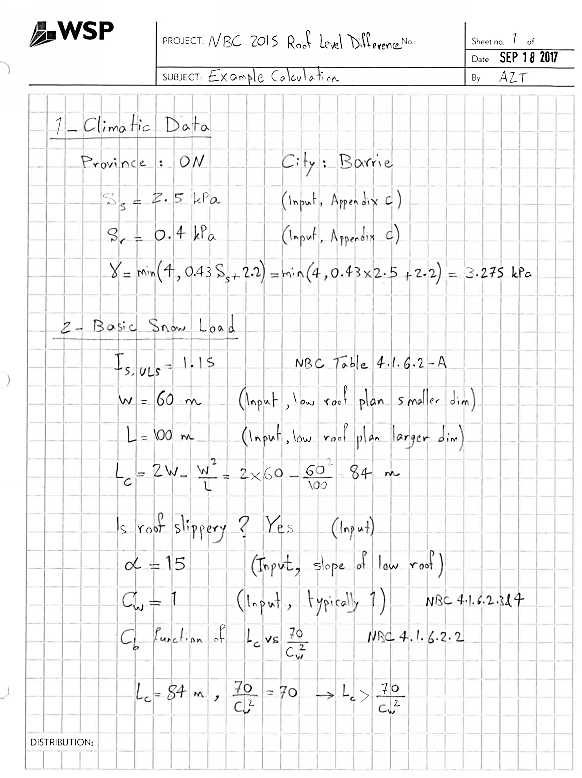 WSP
PROJECT: NBC 2015 Roof Level Difference No.:
Sheet no. 1 of
Date SEP 18 2017
SUBJECT: Example Calculation
By AZT
1 - Climatic Data
Province : ON City : Barrie
Ss = 2.5 kPa (Input, Appendix C)
Sr = 0.4 kPa (Input, Appendix C)
γ = min(4, 0.43 Ss + 2.2) = min(4, 0.43×2.5 + 2.2) = 3.275 kPa
2 - Basic Snow Load
Is,ULS = 1.15 NBC Table 4.1.6.2-A
W = 60 m (Input, low roof plan smaller dim)
L = 100 m (Input, low roof plan larger dim)
Lc = 2W - W²/L = 2×60 - 60²/100 = 84 m
Is roof slippery ? Yes (Input)
α = 15 (Input, slope of low roof)
Cw = 1 (Input, typically 1) NBC 4.1.6.2.3&4
Cb function of Lc vs 70/Cw² NBC 4.1.6.2.2
Lc = 84 m , 70/Cw² = 70 → Lc > 70/Cw²
DISTRIBUTION: